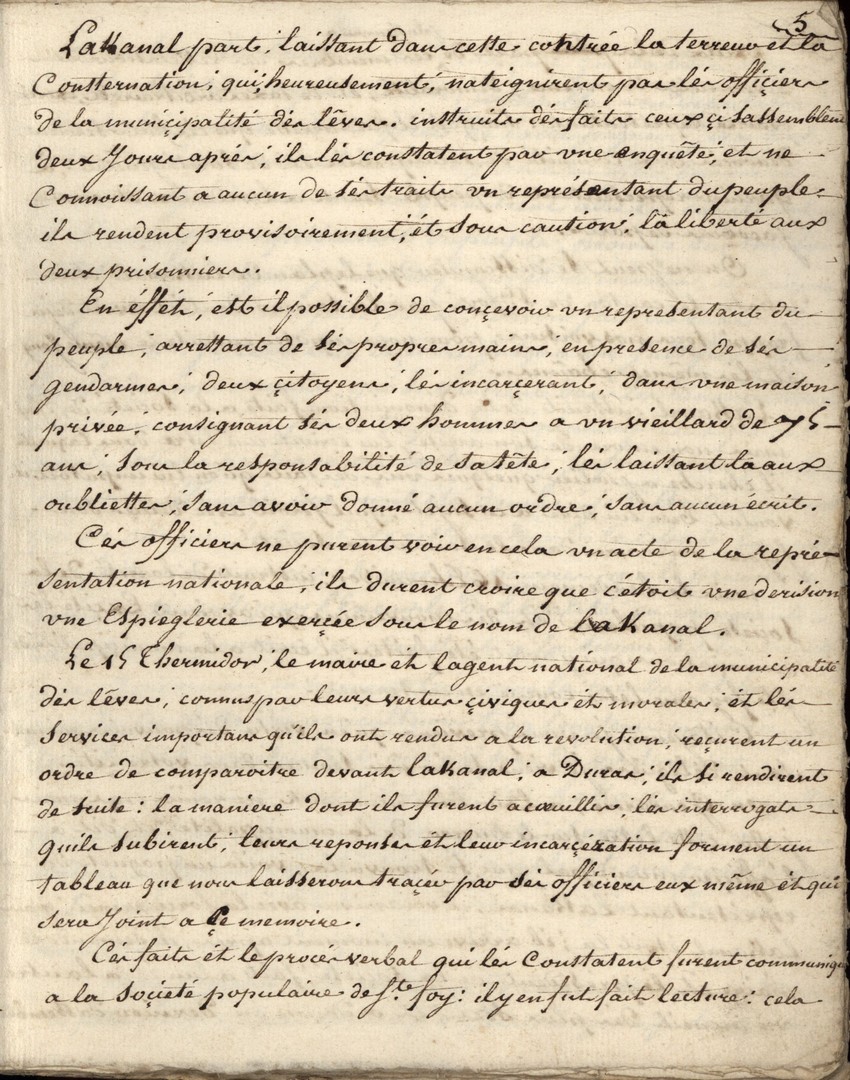 5
LaKanal part, laissant dans cette contrée la terreur et la
Consternation; qui, heureusement, nateignirent pas lés officiers
de la muniçipalité dés lêves. instruits dés faits ceux çi sassemblent
deux Jours aprés; ils lés constatent par une enquête, et ne
Connoissant a aucun de sés traits un représentant du peuple
ils rendent provisoirement, ét sous caution, la liberté aux
deux prisonniers.
En éffét, est il possible de conçevoir un representant du
peuple, arrettant de sés propres mains, en presence de sés
gendarmes, deux çitoyens, lés incarçerant, dans une maison
privée, consignant sés deux hommes a un vieillard de 75
ans, sous la responsabilité de sa tête, lés laissant la aux
oubliettes, sans avoir donné aucun ordre, sans aucun écrit.
Cés officiers ne purent voir en cela un acte de la repré-
sentation nationale, ils durent croire que c'étoit une derision
une Espieglerie exerçée sous le nom de laKanal.
Le 15 Thermidor, le maire ét lagent national de la muniçipalité
dés lêves, connus par leurs vertus çiviques ét morales, ét lés
services importans qu'ils ont rendus a la revolution, reçurent un
ordre de comparoitre devant laKanal, a Duras, ils si rendirent
de suite: la maniere dont ils furent acœuillis, lés interrogats
quils subirent, leurs reponses ét leur incarçération forment un
tableau que nous laisserons traçér par sés officiers eux même ét qui
sera Joint a çe memoire.
Cés faits ét le procés verbal qui lés Constatent furent communiqu
a la soçiété populaire de Ste foy: il y en fut fait lecture: cela